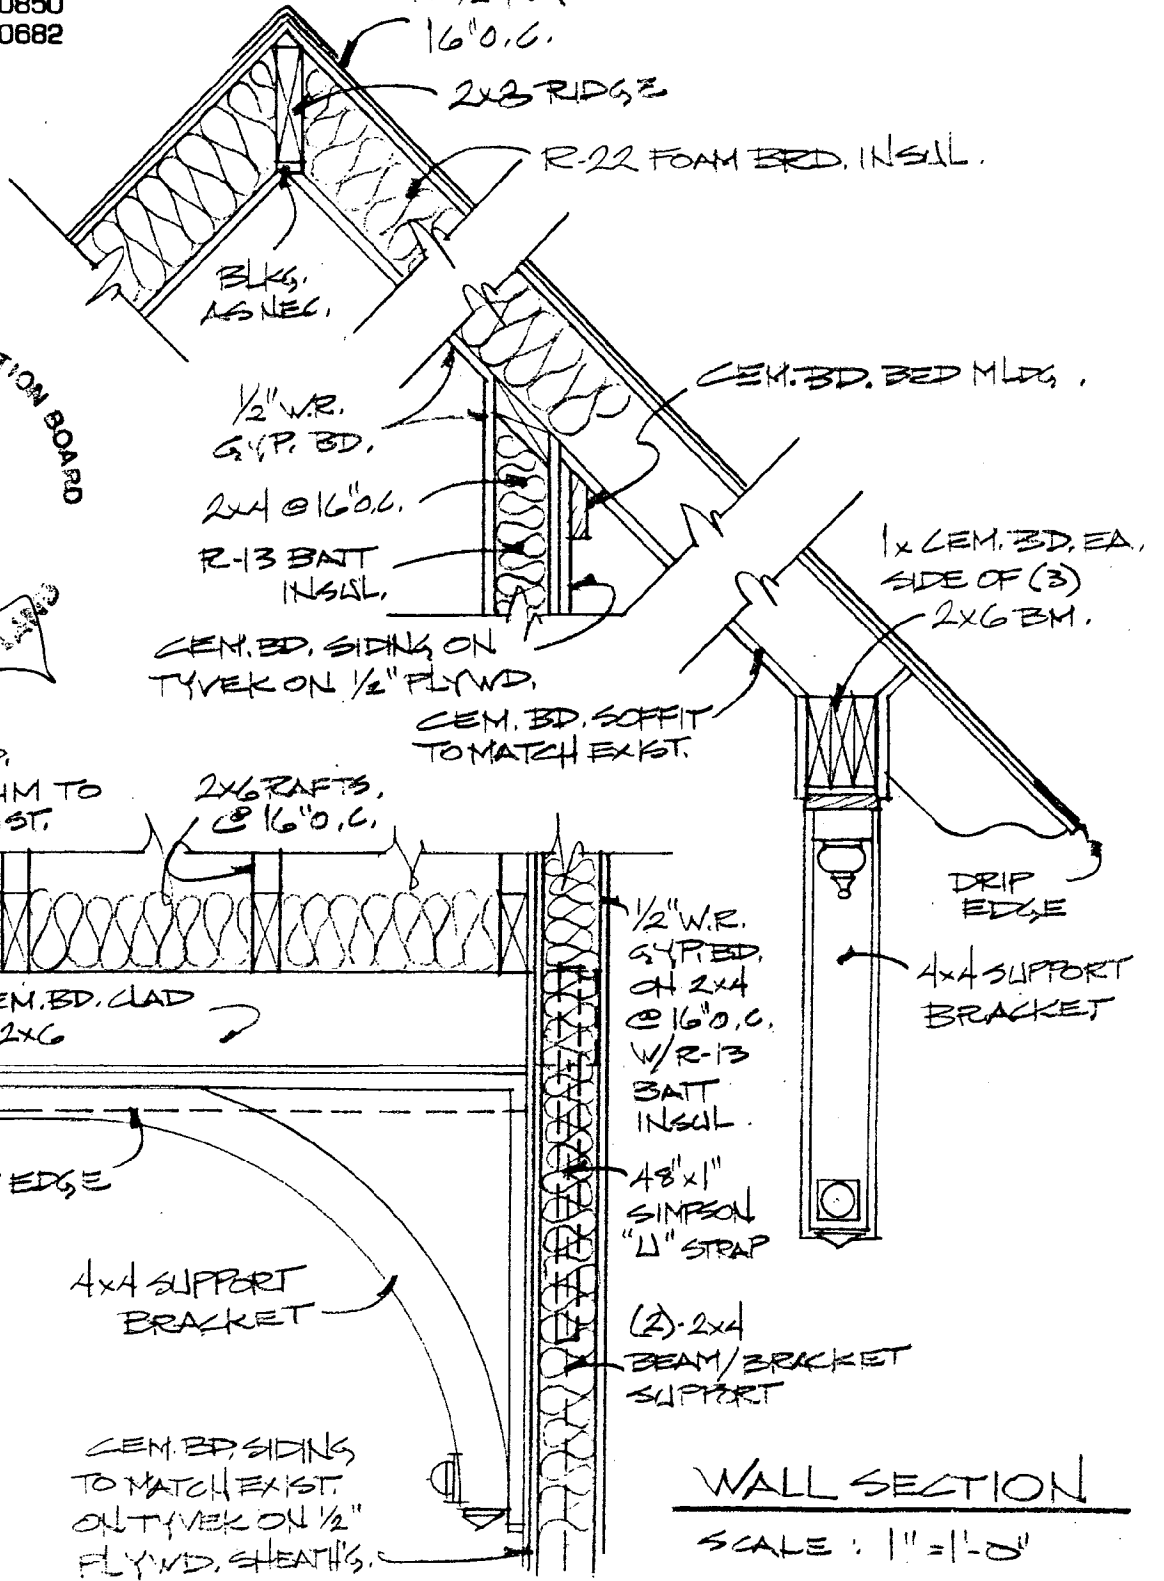 0850
0682
16"O.C.
2x8 RIDGE
R-22 FOAM BRD. INSUL.
BLKG.
AS NEC.
TION BOARD
CEM. BD. BED MLDG.
1/2" W.R.
GYP. BD.
2x4 @ 16"O.C.
R-13 BATT
INSUL.
1x CEM. BD. EA.
SIDE OF (3)
2x6 BM.
CEM. BD. SIDING ON
TYVEK ON 1/2" PLYWD.
CEM. BD. SOFFIT
TO MATCH EXIST.
TO
ST.
2x6 RAFTS.
@ 16"O.C.
DRIP
EDGE
1/2" W.R.
GYP. BD.
ON 2x4
@ 16"O.C.
W/ R-13
BATT
INSUL.
4x4 SUPPORT
BRACKET
EM. BD. CLAD
2x6
EDGE
48"x1"
SIMPSON
"U" STRAP
4x4 SUPPORT
BRACKET
(2)-2x4
BEAM/BRACKET
SUPPORT
CEM. BD. SIDING
TO MATCH EXIST.
ON TYVEK ON 1/2"
PLYWD. SHEATH'G.
WALL SECTION
SCALE : 1"=1'-0"